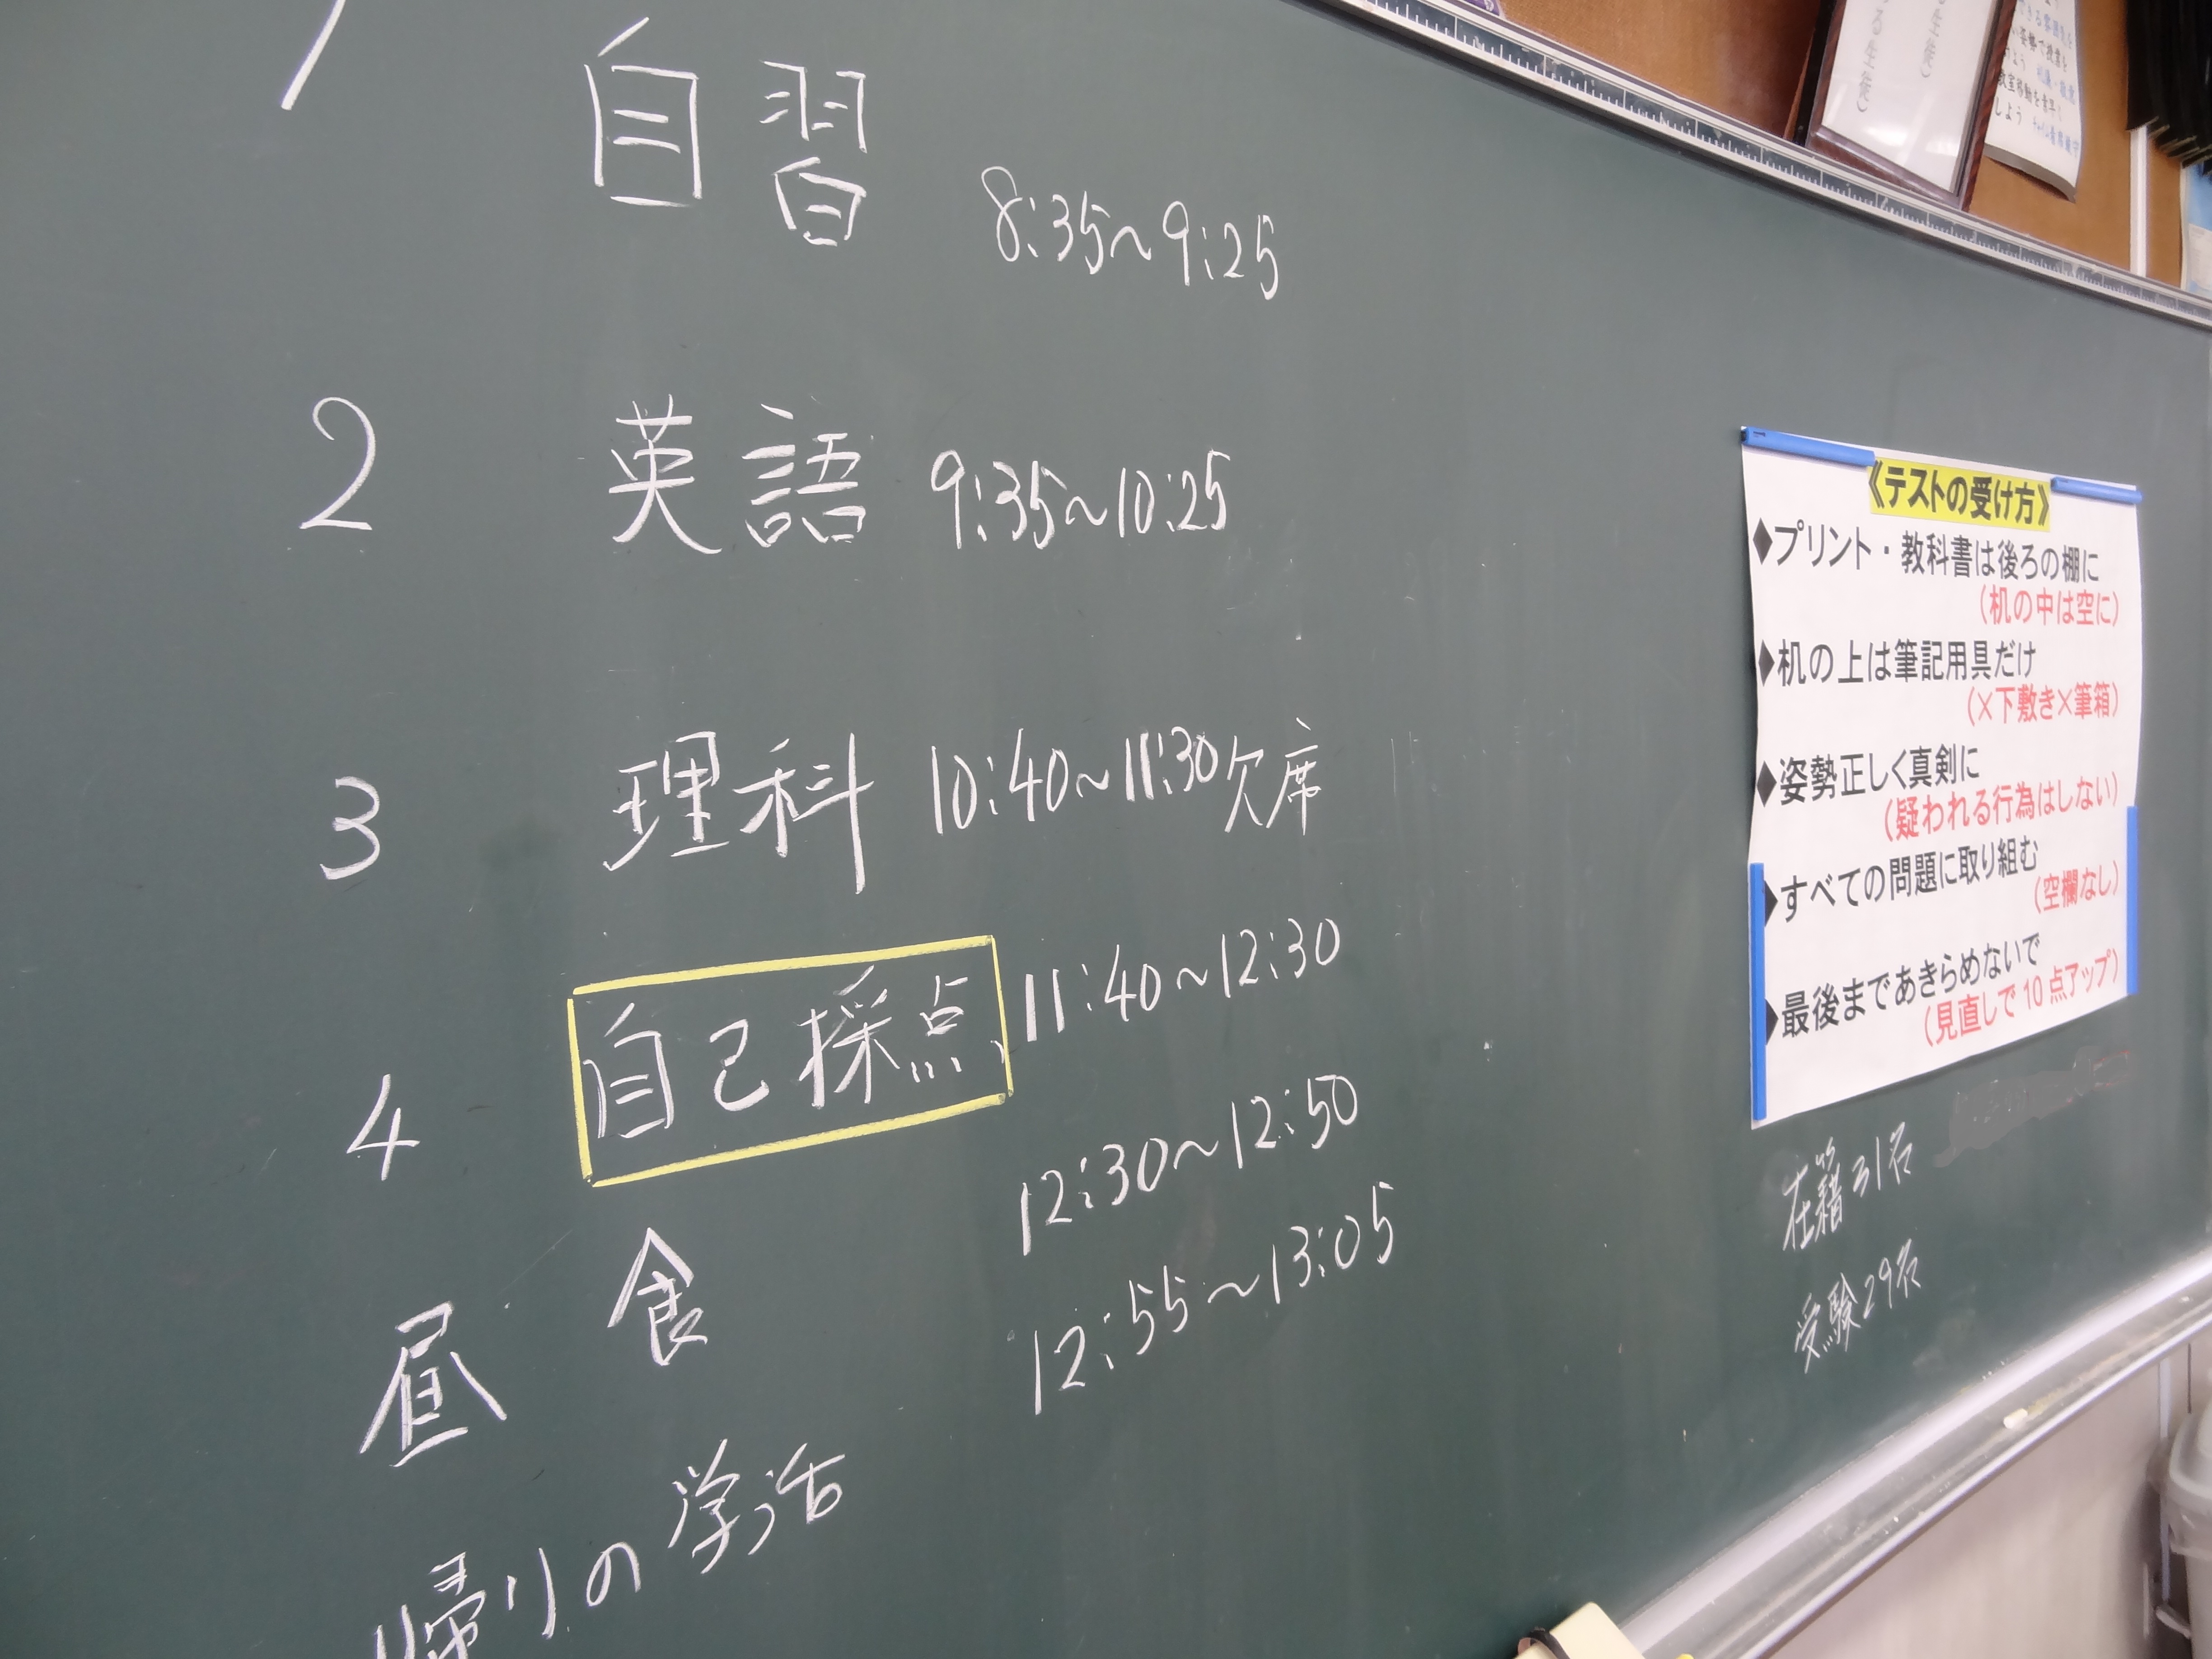 1 自習 8:35~9:25
2 英語 9:35~10:25
3 理科 10:40~11:30 欠席
4 自己採点 11:40~12:30
昼食 12:30~12:50
帰りの学活 12:55~13:05
《テストの受け方》
◆プリント・教科書は後ろの棚に
(机の中は空に)
◆机の上は筆記用具だけ
(×下敷き×筆箱)
◆姿勢正しく真剣に
(疑われる行為はしない)
◆すべての問題に取り組む
(空欄なし)
◆最後まであきらめないで
(見直しで10点アップ)
在籍31名
受験29名
る生徒)
生徒)